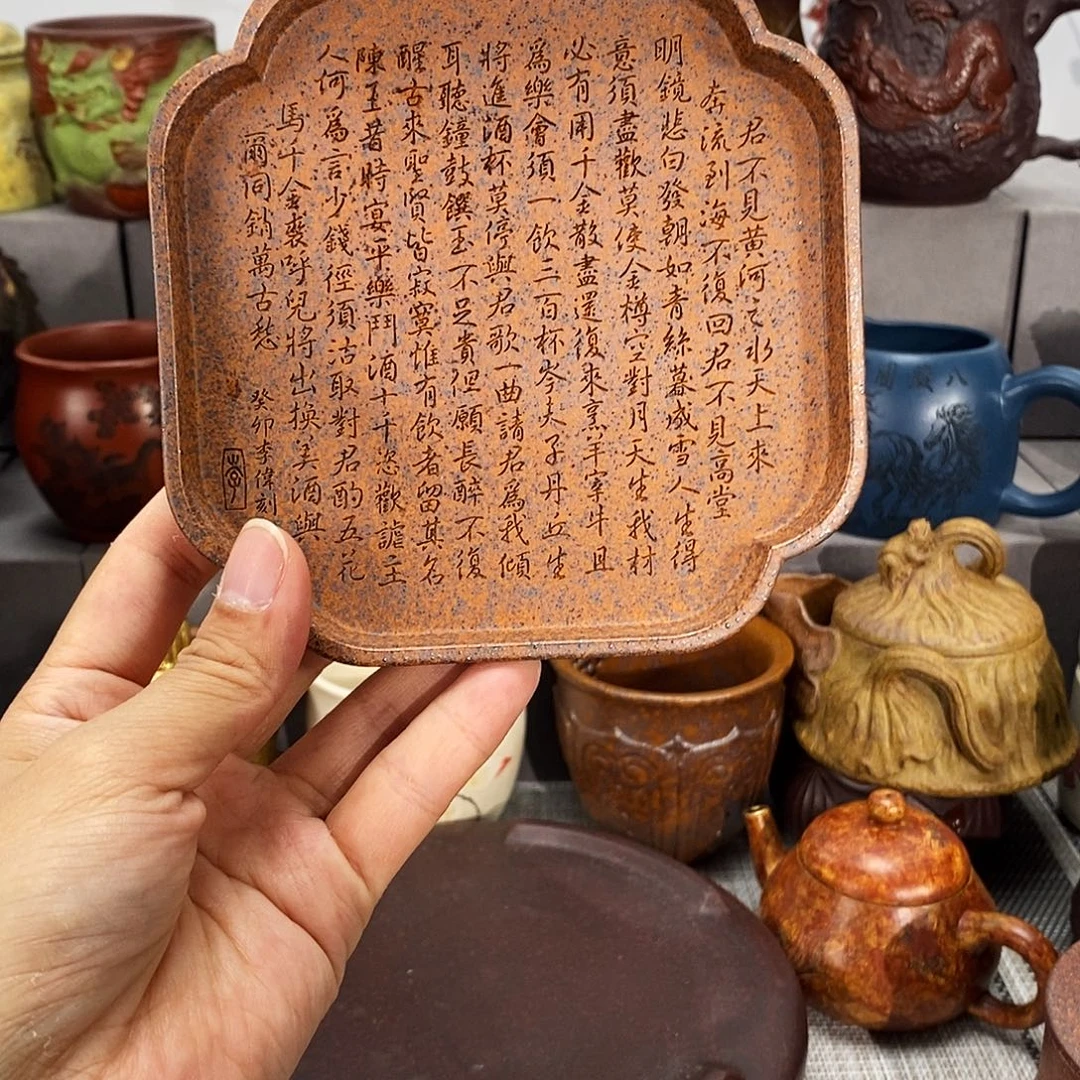 君不見黄河之水天上來
奔流到海不復回君不見高堂
明鏡悲白發朝如青絲暮成雪人生得
意須盡歡莫使金樽空對月天生我材
必有用千金散盡還復來烹羊宰牛且
爲樂會須一飲三百杯岑夫子丹丘生
將進酒杯莫停與君歌一曲請君爲我傾
耳聽鐘鼓饌玉不足貴但願長醉不復
醒古來聖賢皆寂寞惟有飲者留其名
陳王昔時宴平樂鬥酒十千恣歡謔主
人何爲言少錢徑須沽取對君酌五花
馬千金裘呼兒將出換美酒與
爾同銷萬古愁
癸卯李偉刻
八駿圖